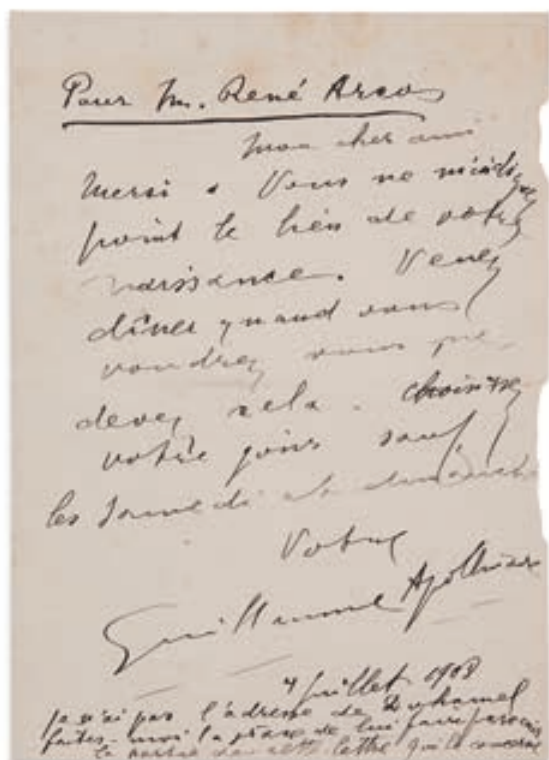 Pour M. René Arcos
Mon cher ami
Merci. Vous ne m'indiquez
point le lieu de votre
naissance. Venez
dîner quand vous
voudrez vous me
devez cela. Choisissez
votre jour sauf
les samedi et dimanche
Votre
Guillaume Apollinaire
4 juillet 1908
je n'ai pas l'adresse de Duhamel
faites-moi la grâce de lui faire parvenir
la partie de cette lettre qui le concerne